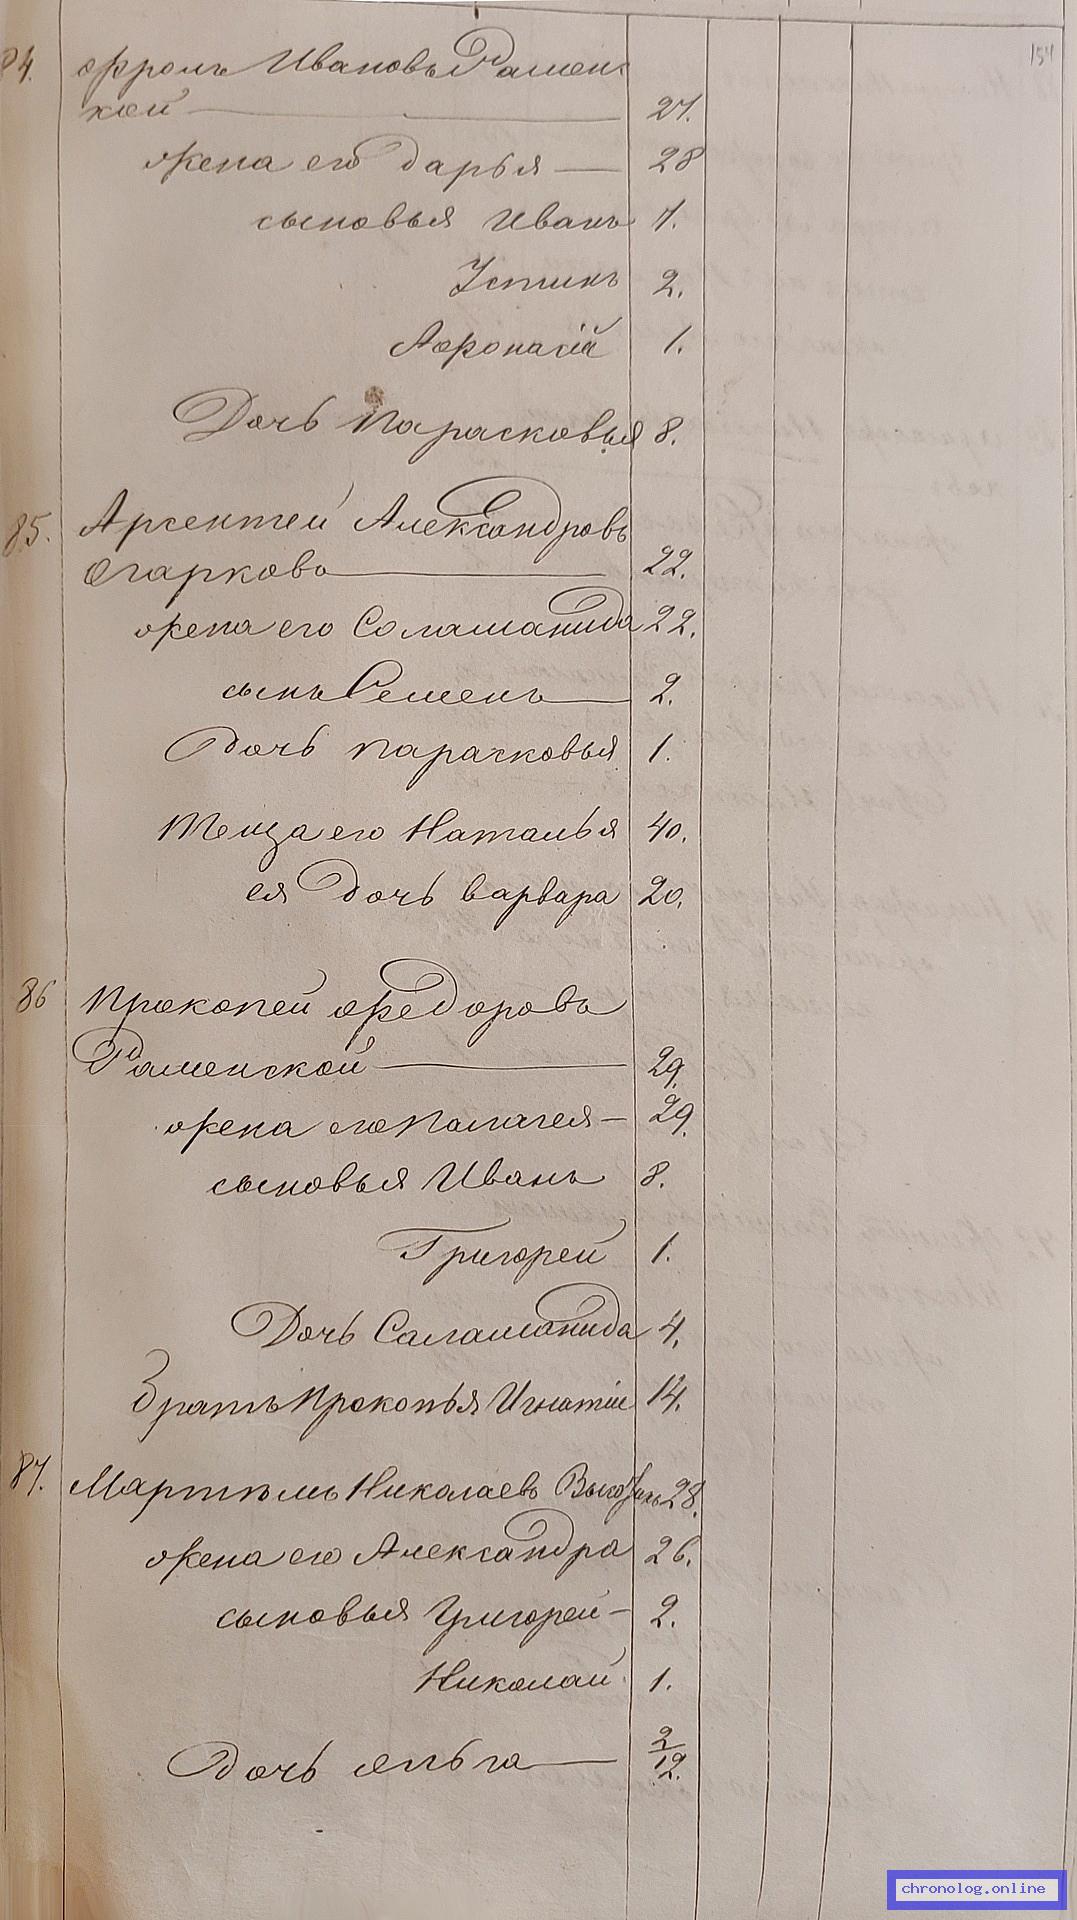 154
84. Фролъ Ивановъ Рамен-
ской 27.
жена его Дарья 28
сыновья Иванъ 7.
Устинъ 2.
Афонасій 1.
Дочь Парасковья 8.
85. Арсентей Александровъ
Огарковъ 22.
жена его Соломанида 22.
сынъ Семенъ 2.
Дочь Парасковья 1.
Теща его Наталья 40.
ея Дочь Варвара 20.
86 Прокопей Федоровъ
Раменской 29.
жена его Палагея 29.
сыновья Иванъ 8.
Григорей 1.
Дочь Саламанида 4.
Братъ Прокопья Игнатіи 14.
87. Николаев 28.
жена его Александра 26.
сыновья Григорей 2.
Николай 1.
Дочь Ольга 2/12.
chronolog.online